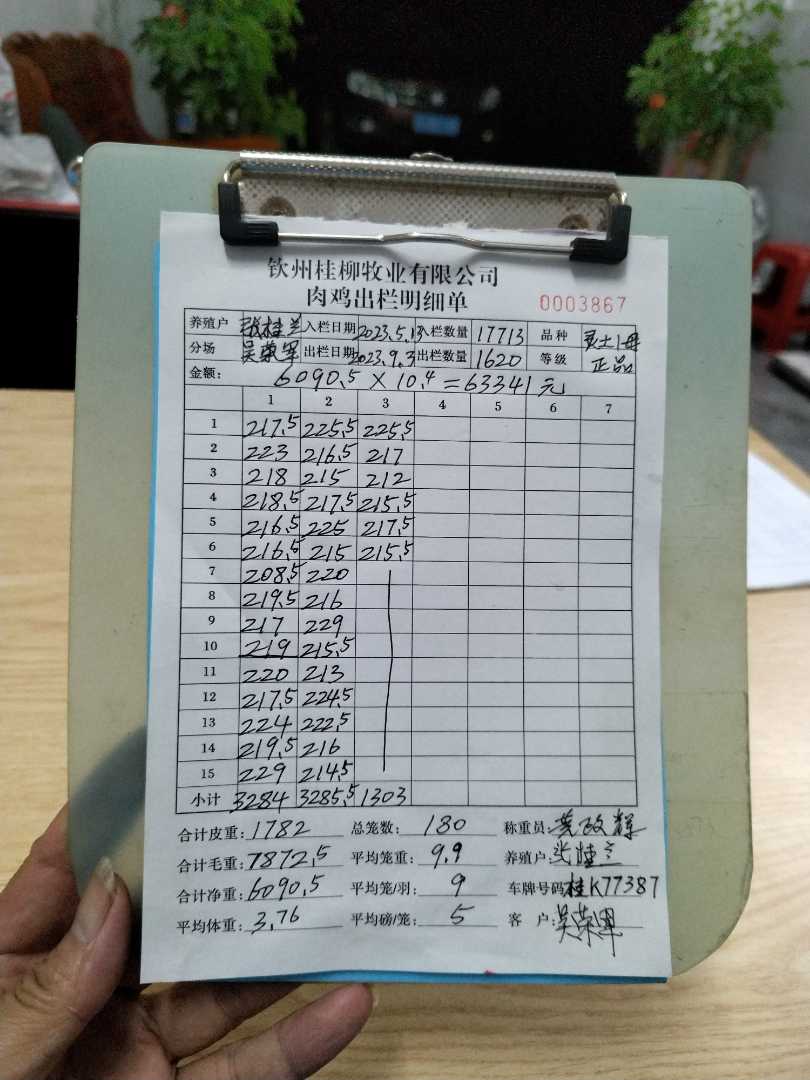 钦州桂柳牧业有限公司
肉鸡出栏明细单 0003867
养殖户 张桂兰 入栏日期 2023.5.13 入栏数量 17713 品种 灵土1母
分场 吴荣军 出栏日期 2023.9.3 出栏数量 1620 等级 正品
金额: 6090.5 × 10.4 = 63341元
1 2 3 4 5 6 7
1 217.5 225.5 225.5
2 223 216.5 217
3 218 215 212
4 218.5 217.5 215.5
5 216.5 225 217.5
6 216.5 215 215.5
7 208.5 220
8 219.5 216
9 217 229
10 219 215.5
11 220 213
12 217.5 224.5
13 224 222.5
14 219.5 216
15 229 214.5
小计 3284 3285.5 1303
合计皮重: 1782 总笼数: 180 称重员:
合计毛重: 7872.5 平均笼重: 9.9 养殖户: 张桂兰
合计净重: 6090.5 平均笼/羽: 9 车牌号码 桂K77387
平均体重: 3.76 平均磅/笼: 5 客 户: 吴荣军